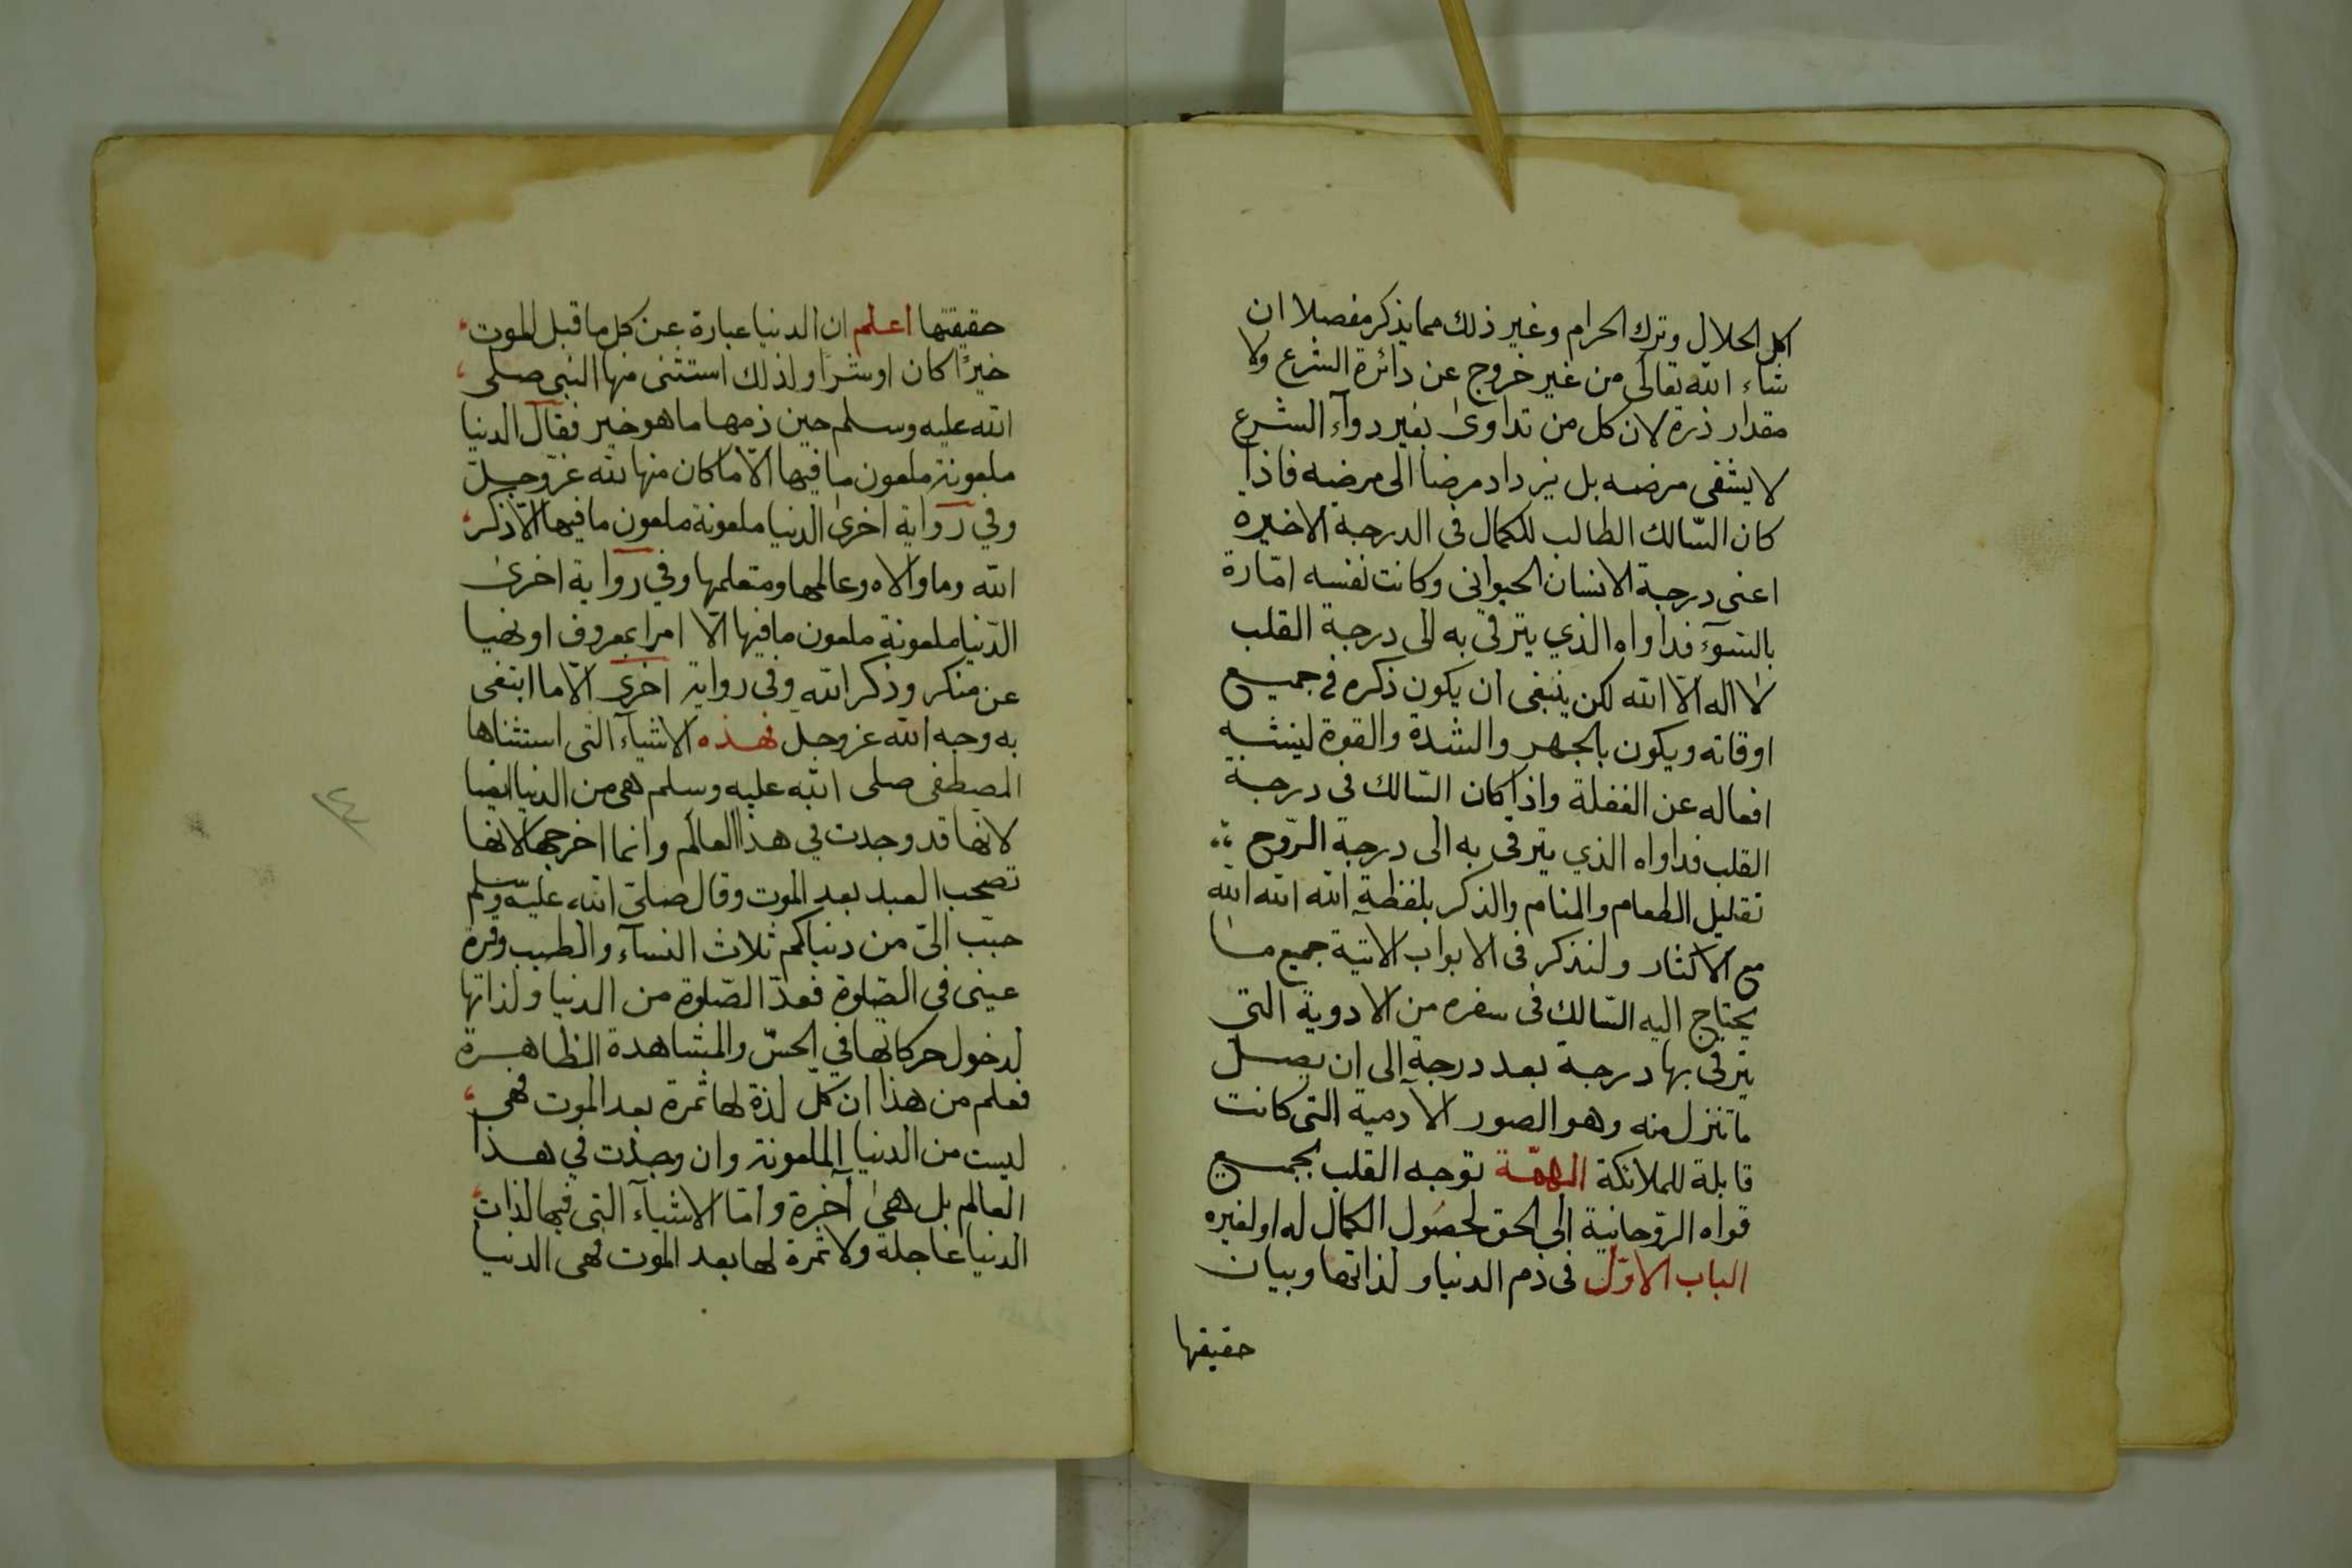 اكل الحلال وترك الحرام وغير ذلك مما يذكر مفصلا ان
شاء الله تعالى من غير خروج عن دائرة الشرع ولا
مقدار ذرة لان كل من تداوى بغير دوآء الشرع
لا يشفى مرضه بل يزداد مرضا الى مرضه فاذا
كان السّالك الطالب للكمال فى الدرجة الاخيره
اعنى درجة الانسان الحيوانى وكانت نفسه امّارة
بالسّوء فداواه الذي يترقى به الى درجة القلب
لا اله الّا الله لكن ينبغى ان يكون ذكره في جميع
اوقاته ويكون بالجهر والشدة والقوة لينتبه
افعاله عن الغفلة واذا كان السّالك فى درجة
القلب فداواه الذي يترقى به الى درجة الرّوح
تقليل الطعام والمنام والذكر بلفظة الله الله الله
مع الاكثار ولنذكر فى الابواب الاتية جميع ما
يحتاج اليه السّالك فى سفره من الادوية التي
يترقى بها درجة بعد درجة الى ان يصل
ما تنزل منه وهو الصور الآدمية التى كانت
قابلة للملائكة الهمّة توجه القلب بجميع
قواه الرّوحانية الى الحق لحصُول الكمال له او لغيره
الباب الاوّل فى ذم الدنيا ولذاتها وبيان
حقيقتها
حقيقتها اعلم ان الدنيا عبارة عن كل ما قبل الموت
خيرًا كان او شرًا ولذلك استثنى منها النبى صلى
الله عليه وسلم حين ذمها ما هو خير فقال الدنيا
ملعونة ملعون ما فيها الّا ما كان منها لله عزّ وجلّ
وفي رواية اخرى الدنيا ملعونة ملعون ما فيها الّا ذكر
الله وما والاه وعالمها ومتعلمها وفي رواية اخرى
الدّنيا ملعونة ملعون ما فيها الّا امرا بمعروف او نهيا
عن منكر وذكر الله وفى رواية اخرى الّا ما ابتغى
به وجه الله عز وجلّ فهذه الاشيآء التى استثناها
المصطفى صلى الله عليه وسلم هى من الدنيا ايضا
لانها قد وجدت في هذا العالم وانما اخرجها لانها
تصحب العبد بعد الموت وقال صلى الله عليه وسلم
حبّب الىّ من دنياكم ثلاث النسآء والطيب وقرة
عينى في الصّلوة فعدّ الصّلوة من الدنيا ولذاتها
لدخول حركاتها في الحسّ والمشاهدة الظاهرة
فعلم من هذا ان كلّ لذة لها ثمرة بعد الموت فهى
ليست من الدنيا الملعونة وان وجدت في هذا
العالم بل هى آخرة وامّا الاشيآء التى فيها لذات
الدنيا عاجلة ولا ثمرة لها بعد الموت فهى الدنيا